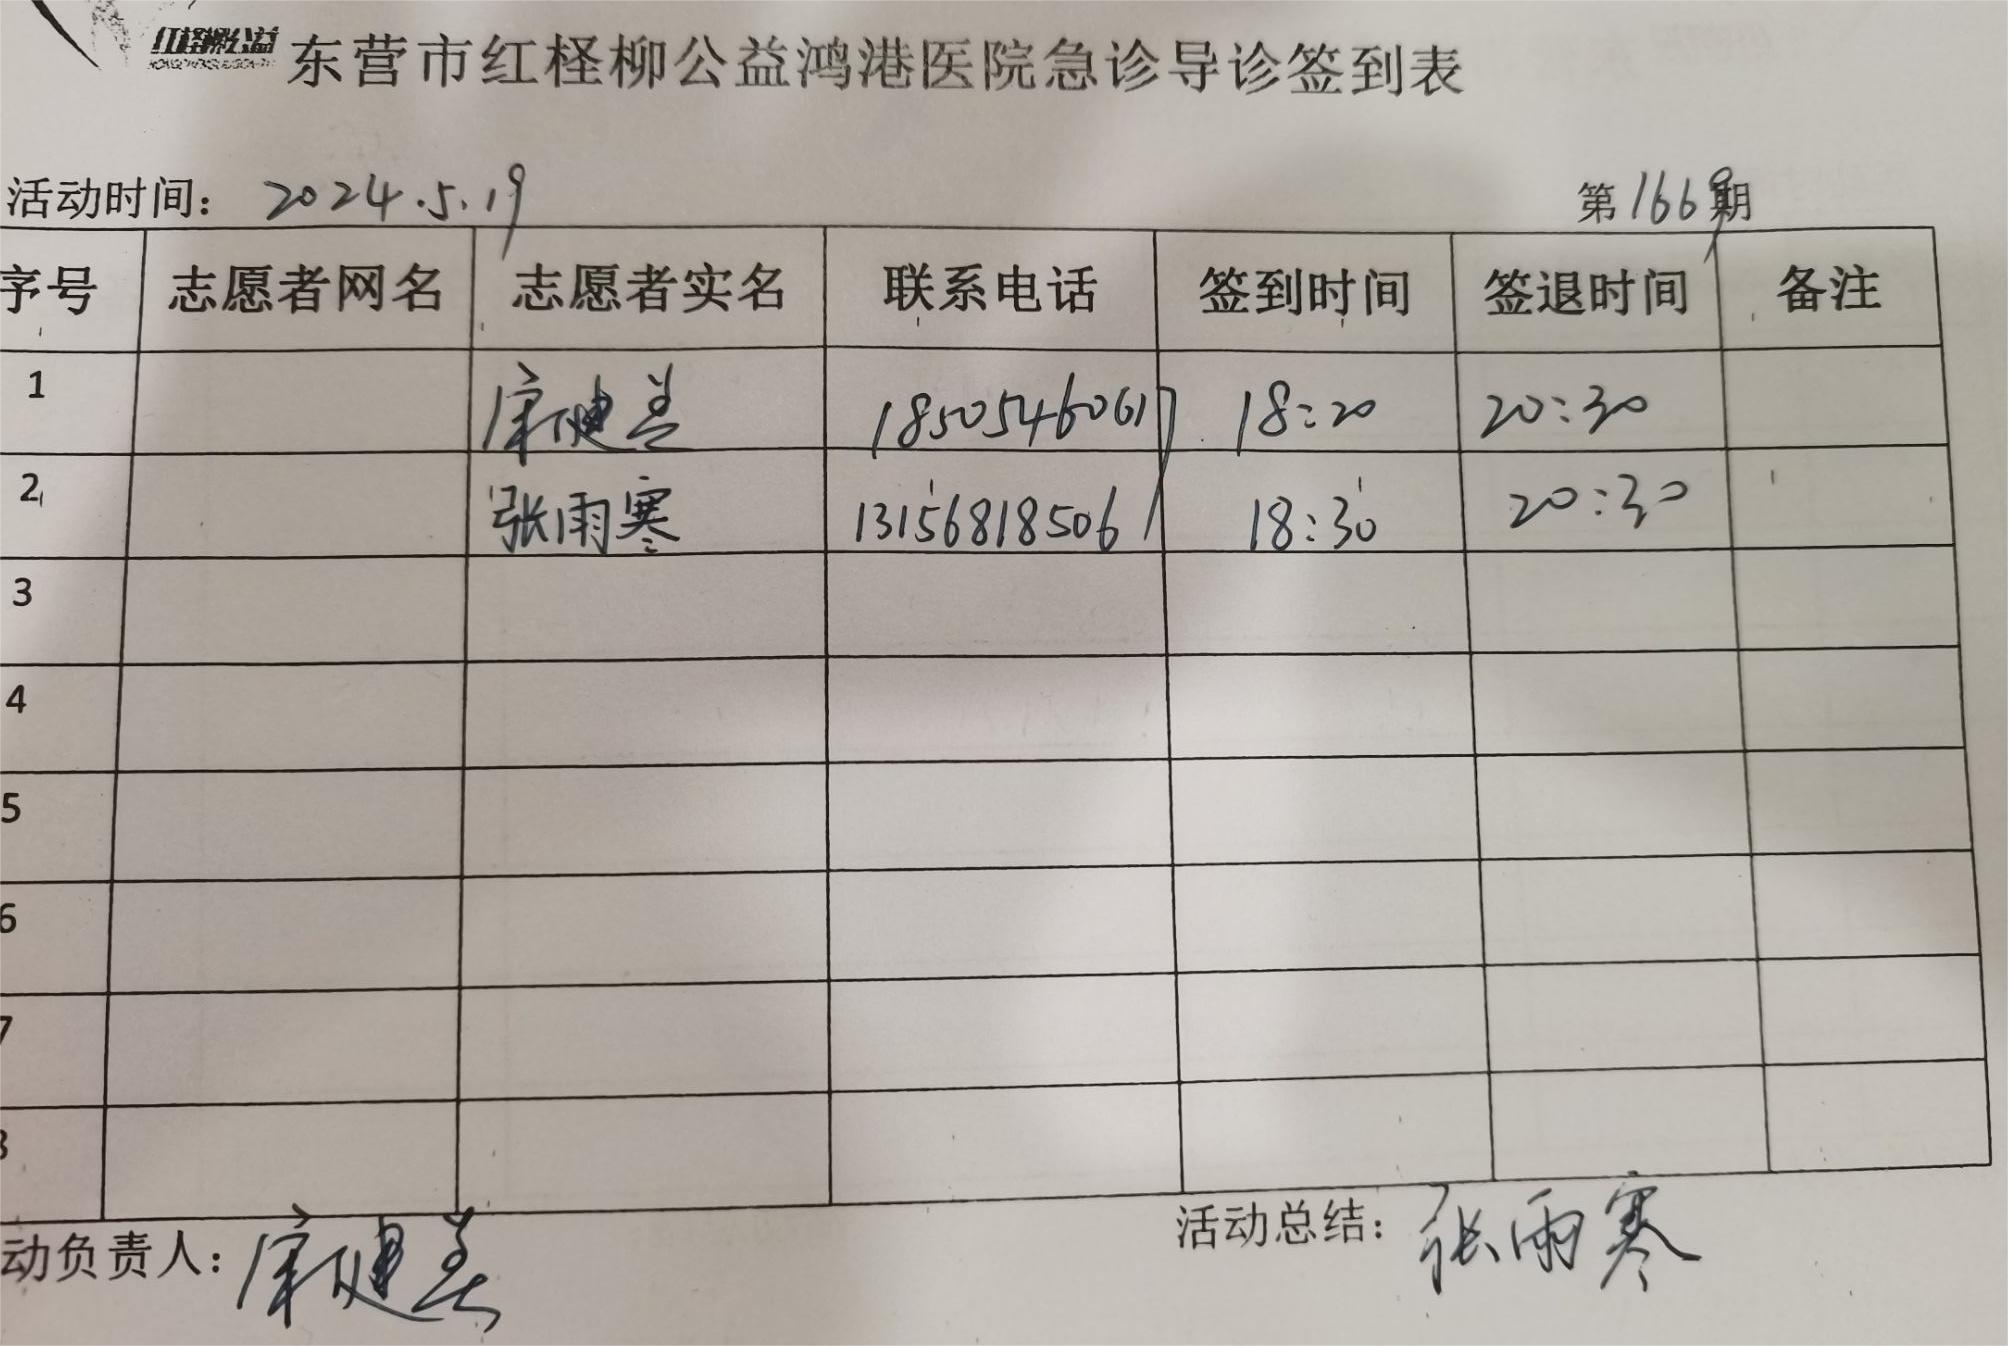 红柽柳公益
东营市红柽柳公益鸿港医院急诊导诊签到表
活动时间: 2024.5.19 第1669期
序号 志愿者网名 志愿者实名 联系电话 签到时间 签退时间 备注
1 康健美 18505460617 18:20 20:30
2 张雨寒 13156818506 18:30 20:30
3
4
5
6
7
8
动负责人: 康健美 活动总结: 张雨寒